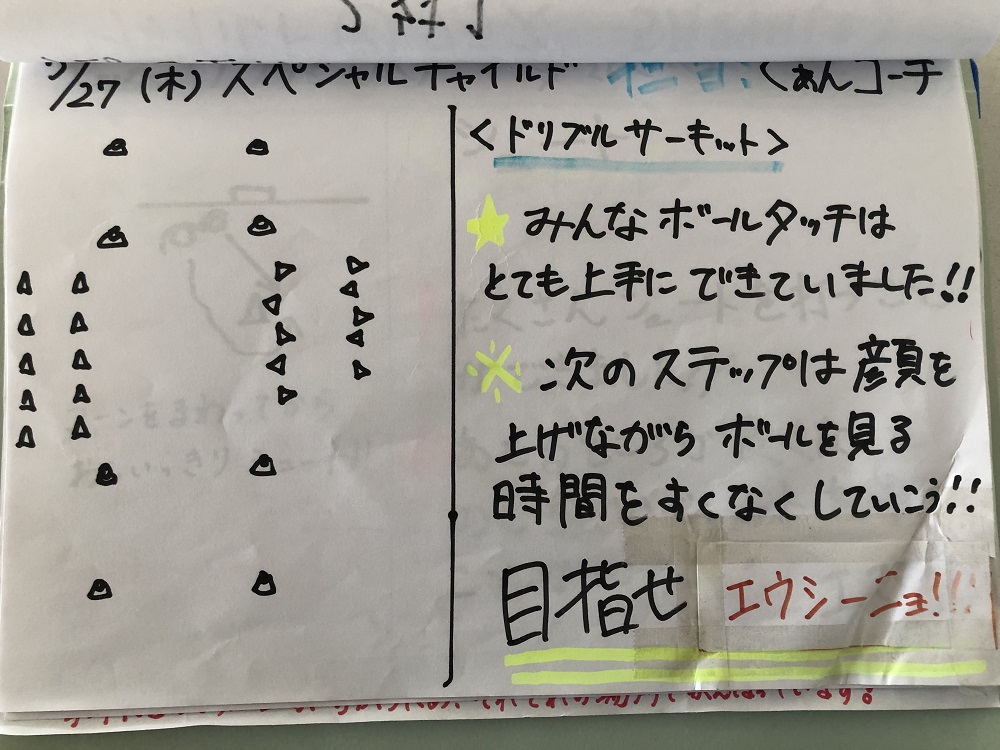 /27 (木) スペシャルチャイルド 担当:くぁんコーチ
<ドリブルサーキット>
★ みんなボールタッチは
とても上手にできていました!!
※ 次のステップは顔を
上げながらボールを見る
時間をすくなくしていこう!!
目指せ エウシーニョ!!!